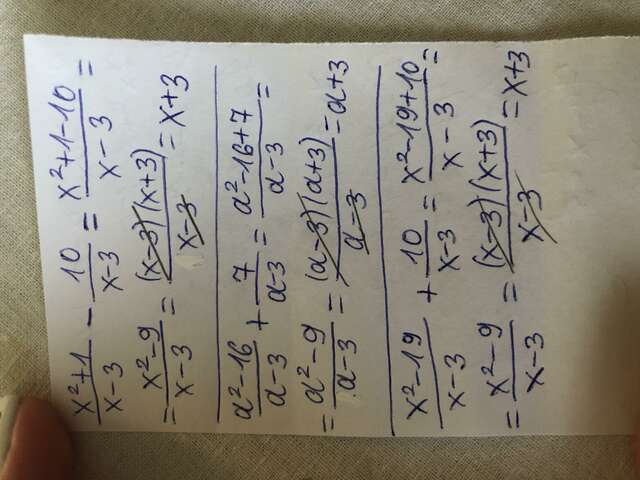 (x²+1)/(x-3) - 10/(x-3) = (x²+1-10)/(x-3) =
= (x²-9)/(x-3) = ((x-3)(x+3))/(x-3) = x+3
(a²-16)/(a-3) + 7/(a-3) = (a²-16+7)/(a-3) =
= (a²-9)/(a-3) = ((a-3)(a+3))/(a-3) = a+3
(x²-19)/(x-3) + 10/(x-3) = (x²-19+10)/(x-3) =
= (x²-9)/(x-3) = ((x-3)(x+3))/(x-3) = x+3